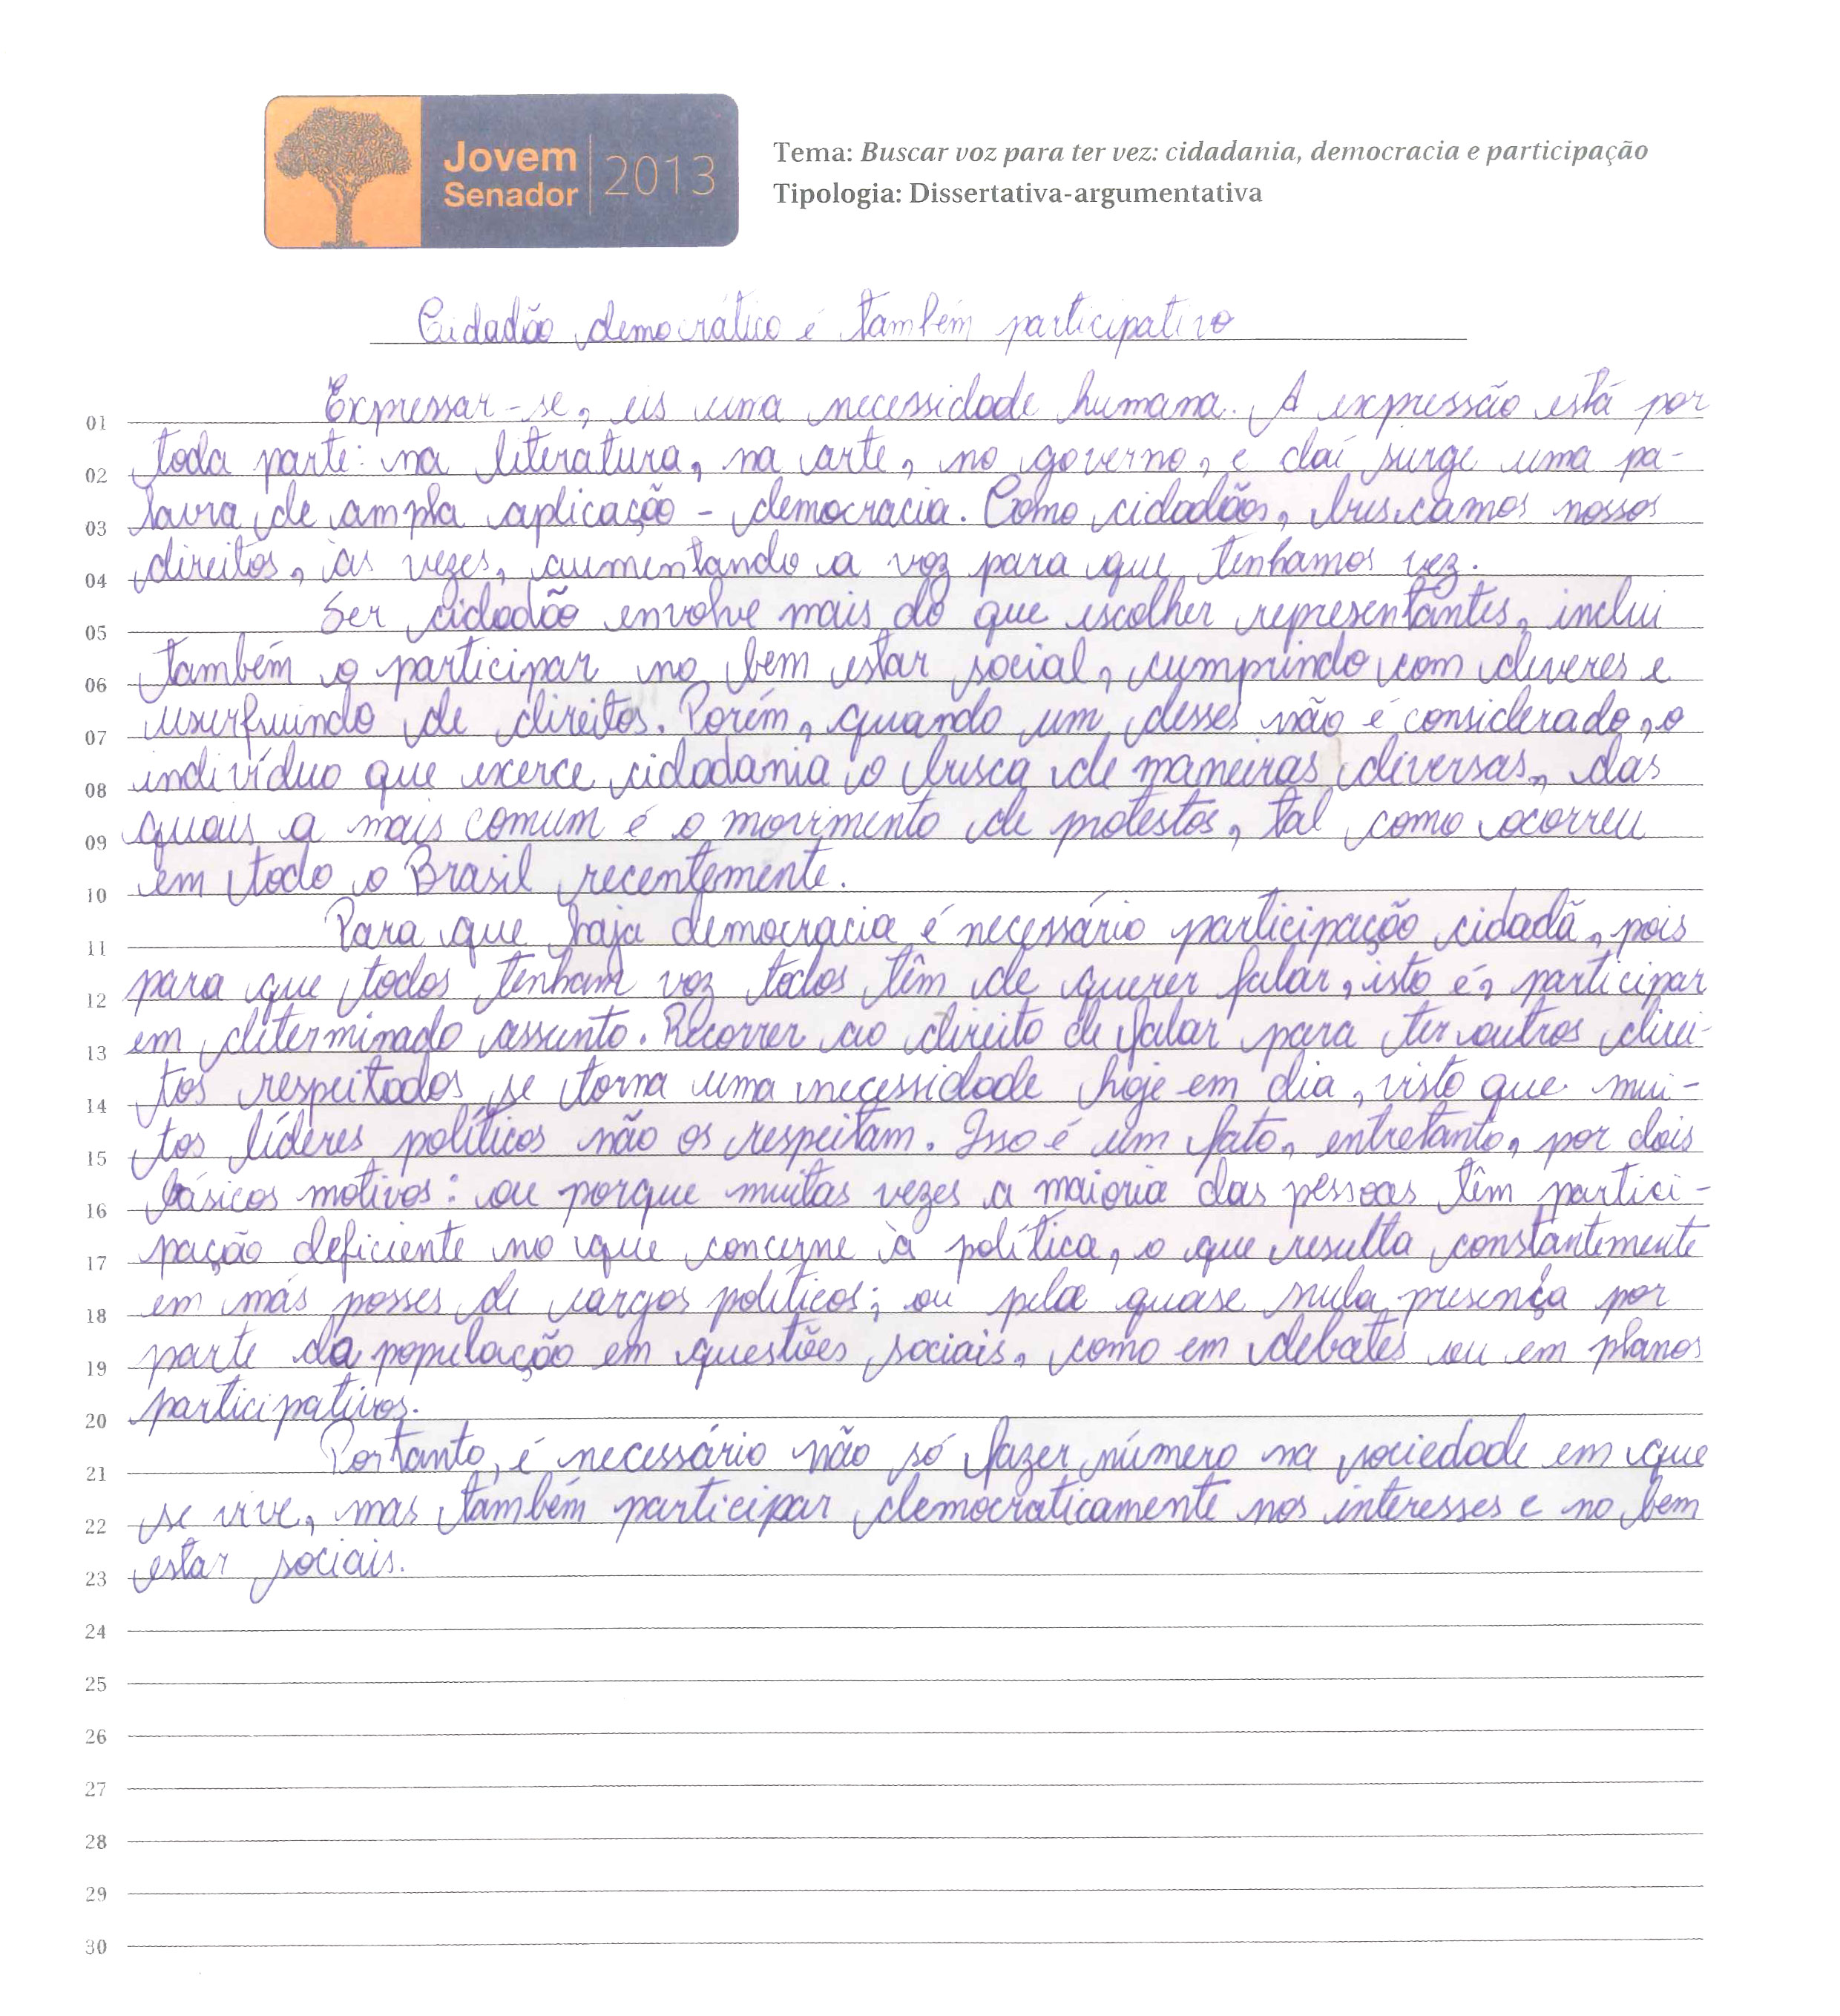 Jovem
Senador
2013
Tema: Buscar voz para ter vez: cidadania, democracia e participação
Tipologia: Dissertativa-argumentativa
Cidadão democrático é também participativo
01 Expressar-se, eis uma necessidade humana. A expressão está por
02 toda parte: na literatura, na arte, no governo, e daí surge uma pa-
03 lavra de ampla aplicação - democracia. Como cidadãos, buscamos nossos
04 direitos, às vezes, aumentando a voz para que tenhamos vez.
05 Ser cidadão envolve mais do que escolher representantes, inclui
06 também o participar no bem estar social, cumprindo com deveres e
07 usurfruindo de direitos. Porém, quando um desses não é considerado, o
08 indivíduo que exerce cidadania o busca de maneiras diversas, das
09 quais a mais comum é o movimento de protestos, tal como ocorreu
10 em todo o Brasil recentemente.
11 Para que haja democracia é necessário participação cidadã, pois
12 para que todos tenham voz todos têm de querer falar, isto é, participar
13 em determinado assunto. Recorrer ao direito de falar para ter outros direi-
14 tos respeitados se torna uma necessidade hoje em dia, visto que mui-
15 tos líderes políticos não os respeitam. Isso é um fato, entretanto, por dois
16 básicos motivos: ou porque muitas vezes a maioria das pessoas têm partici-
17 pação deficiente no que concerne à política, o que resulta constantemente
18 em más posses de cargos políticos; ou pela quase nula presença por
19 parte da população em questões sociais, como em debates ou em planos
20 participativos.
21 Portanto, é necessário não só fazer número na sociedade em que
22 se vive, mas também participar democraticamente nos interesses e no bem
23 estar sociais.
24
25
26
27
28
29
30